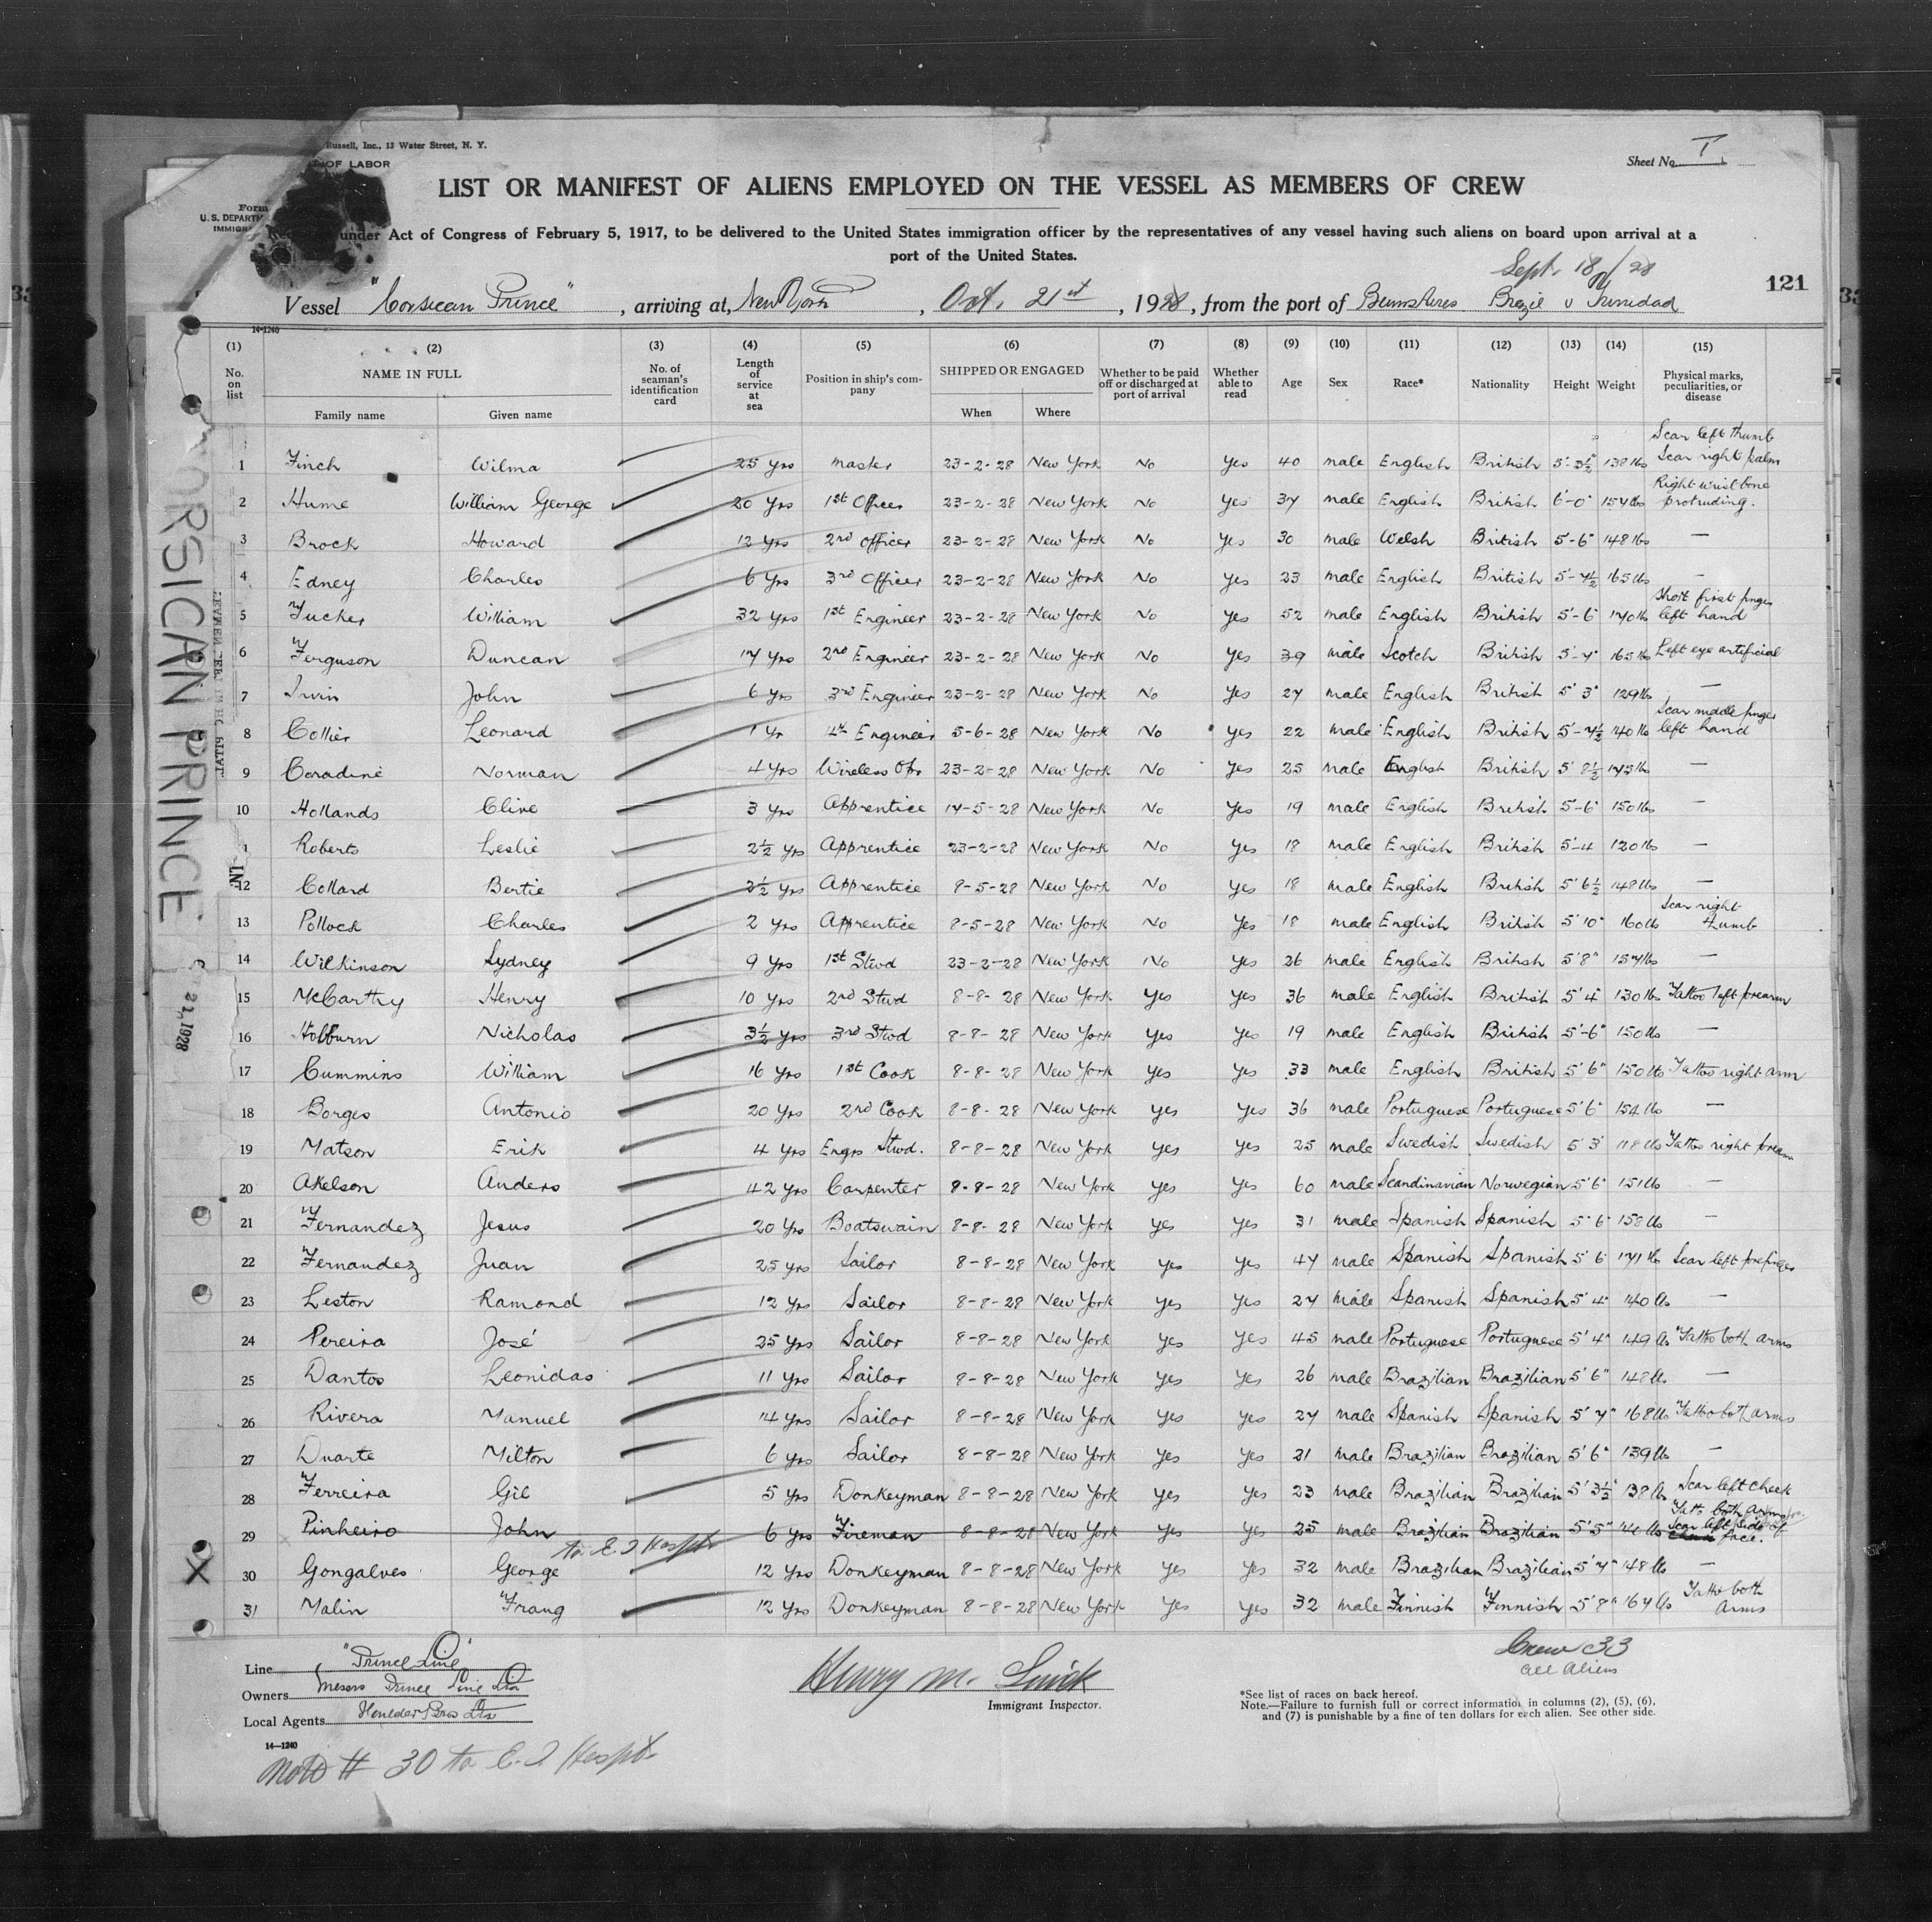 Russell, Inc., 13 Water Street, N. Y.
OF LABOR
Form
U. S. DEPARTM
IMMIGRA
Sheet No. 1
LIST OR MANIFEST OF ALIENS EMPLOYED ON THE VESSEL AS MEMBERS OF CREW
under Act of Congress of February 5, 1917, to be delivered to the United States immigration officer by the representatives of any vessel having such aliens on board upon arrival at a
port of the United States.
Sept. 18/28
121
Vessel "Corsican Prince", arriving at, New York, Oct. 21st, 1928, from the port of Buenos Aires Brazil Trinidad
14-1240
(1) (2) (3) (4) (5) (6) (7) (8) (9) (10) (11) (12) (13) (14) (15)
No. on list NAME IN FULL No. of seaman's identification card Length of service at sea Position in ship's company SHIPPED OR ENGAGED Whether to be paid off or discharged at port of arrival Whether able to read Age Sex Race* Nationality Height Weight Physical marks, peculiarities, or disease
Family name Given name When Where
1 Finch Wilma 25 yrs master 23-2-28 New York No Yes 40 male English British 5'-3½" 138 lbs Scar left thumb Scar right palm
2 Hume William George 20 yrs 1st Officer 23-2-28 New York No Yes 37 male English British 6'-0" 154 lbs Right wrist bone protruding.
3 Brock Howard 12 yrs 2nd Officer 23-2-28 New York No Yes 30 male Welsh British 5'-6" 148 lbs —
4 Edney Charles 6 yrs 3rd Officer 23-2-28 New York No Yes 23 male English British 5'-7½ 165 lbs —
5 Tucker William 32 yrs 1st Engineer 23-2-28 New York No Yes 52 male English British 5'-6 170 lb Short first finger left hand
6 Ferguson Duncan 17 yrs 2nd Engineer 23-2-28 New York No Yes 39 male Scotch British 5'-7" 165 lbs Left eye artificial
7 Irvin John 6 yrs 3rd Engineer 23-2-28 New York No Yes 27 male English British 5' 3" 129 lbs —
8 Collier Leonard 1 yr 4th Engineer 5-6-28 New York No Yes 22 male English British 5'-7½ 140 lb Scar middle finger left hand
9 Coradine Norman 4 yrs Wireless Opr 23-2-28 New York No Yes 25 male English British 5' 8½ 175 lbs —
10 Hollands Clive 3 yrs Apprentice 17-5-28 New York No Yes 19 male English British 5'-6" 150 lbs —
1 Roberts Leslie 2½ yrs Apprentice 23-2-28 New York No Yes 18 male English British 5'-4 120 lbs —
12 Collard Bertie 2½ yrs Apprentice 8-5-28 New York No Yes 18 male English British 5' 6½ 148 lbs —
13 Pollock Charles 2 yrs Apprentice 8-5-28 New York No Yes 18 male English British 5' 10" 160 lb Scar right
14 Wilkinson Sydney 9 yrs 1st Stwd 23-2-28 New York No Yes 26 male English British 5' 8" 157 lbs —
15 McCarthy Henry 10 yrs 2nd Stwd 8-8-28 New York Yes Yes 36 male English British 5' 4" 130 lbs Tattoo left forearm
16 Holburn Nicholas 3½ yrs 3rd Stwd 8-8-28 New York Yes Yes 19 male English British 5'-6" 150 lbs —
17 Cummins William 16 yrs 1st Cook 8-8-28 New York Yes Yes 33 male English British 5' 6" 150 lbs Tattoo right arm
18 Borges Antonio 20 yrs 2nd Cook 8-8-28 New York Yes Yes 36 male Portuguese Portuguese 5' 6" 154 lbs —
19 Matson Erik 4 yrs Engrs Stwd. 8-8-28 New York Yes Yes 25 male Swedish Swedish 5' 3" 118 lbs Tattoo right forearm
20 Akelson Anders 42 yrs Carpenter 8-8-28 New York Yes Yes 60 male Scandinavian Norwegian 5' 6" 151 lbs —
21 Fernandez Jesus 20 yrs Boatswain 8-8-28 New York Yes Yes 31 male Spanish Spanish 5' 6" 158 lbs —
22 Fernandez Juan 25 yrs Sailor 8-8-28 New York Yes Yes 47 male Spanish Spanish 5' 6 171 lb Scar left forefinger
23 Leston Ramond 12 yrs Sailor 8-8-28 New York Yes Yes 27 male Spanish Spanish 5' 4" 140 lbs —
24 Pereira José 25 yrs Sailor 8-8-28 New York Yes Yes 45 male Portuguese Portuguese 5' 4" 149 lbs Tattoo both arms
25 Dantos Leonidas 11 yrs Sailor 8-8-28 New York Yes Yes 26 male Brazilian Brazilian 5' 6" 148 lb. —
26 Rivera Manuel 14 yrs Sailor 8-8-28 New York Yes Yes 27 male Spanish Spanish 5' 7" 168 lb Tattoo both arms
27 Duarte Milton 6 yrs Sailor 8-8-28 New York Yes Yes 21 male Brazilian Brazilian 5' 6" 139 lb —
28 Ferreira Gil 5 yrs Donkeyman 8-8-28 New York Yes Yes 23 male Brazilian Brazilian 5' 3½" 138 lb Scar left cheek
29 Pinheiro John 6 yrs Fireman 8-8-28 New York Yes Yes 25 male Brazilian Brazilian 5' 5" lbs Tatto both arms Scar left side of face.
to E I Hospt
30 Gongalves George 12 yrs Donkeyman 8-8-28 New York Yes Yes 32 male Brazilian Brazilian 5' 7" 148 lb —
31 Malin Frang 12 yrs Donkeyman 8-8-28 New York Yes Yes 32 male Finnish Finnish 5' 8" 167 lbs Tatto both Arms
CORSICAN PRINCE
1928
X
Line "Prince Line"
Owners Messrs Prince Line Ltd
Local Agents Houlder Bros
Henry M.
Immigrant Inspector.
Crew 33
all Aliens
*See list of races on back hereof.
Note.—Failure to furnish full or correct information in columns (2), (5), (6),
and (7) is punishable by a fine of ten dollars for each alien. See other side.
14-1240
Note # 30 to E. I Hospt.